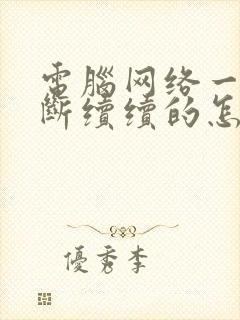 電腦网络一
斷續續的怎
優秀李